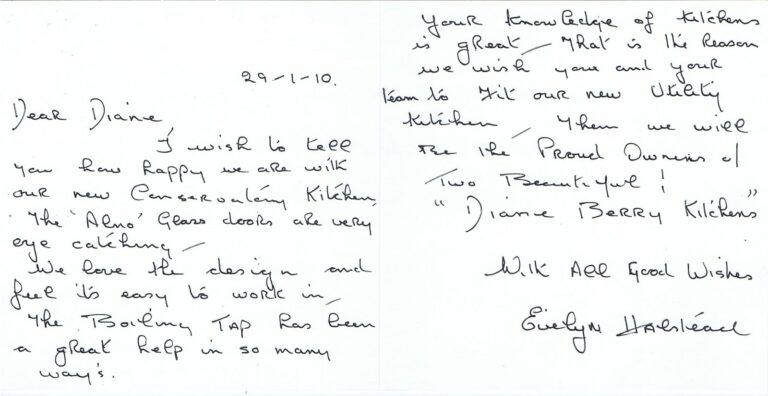 29-1-10.
Dear Diane,
I wish to tell
you how happy we are with
our new Conservatory Kitchen,
The 'Alno' Glass doors are very
eye catching -
We love the design and
feel its easy to work in,
The Boiling Tap has been
a great help in so many
way's.
Your knowledge of kitchens
is great - That is the Reason
we wish you and your
team to Fit our new Utility
Kitchen - Then we will
Be the Proud Owners of
Two Beautiful!
"Diane Berry Kitchens"
With All Good Wishes
Evelyn Halstead